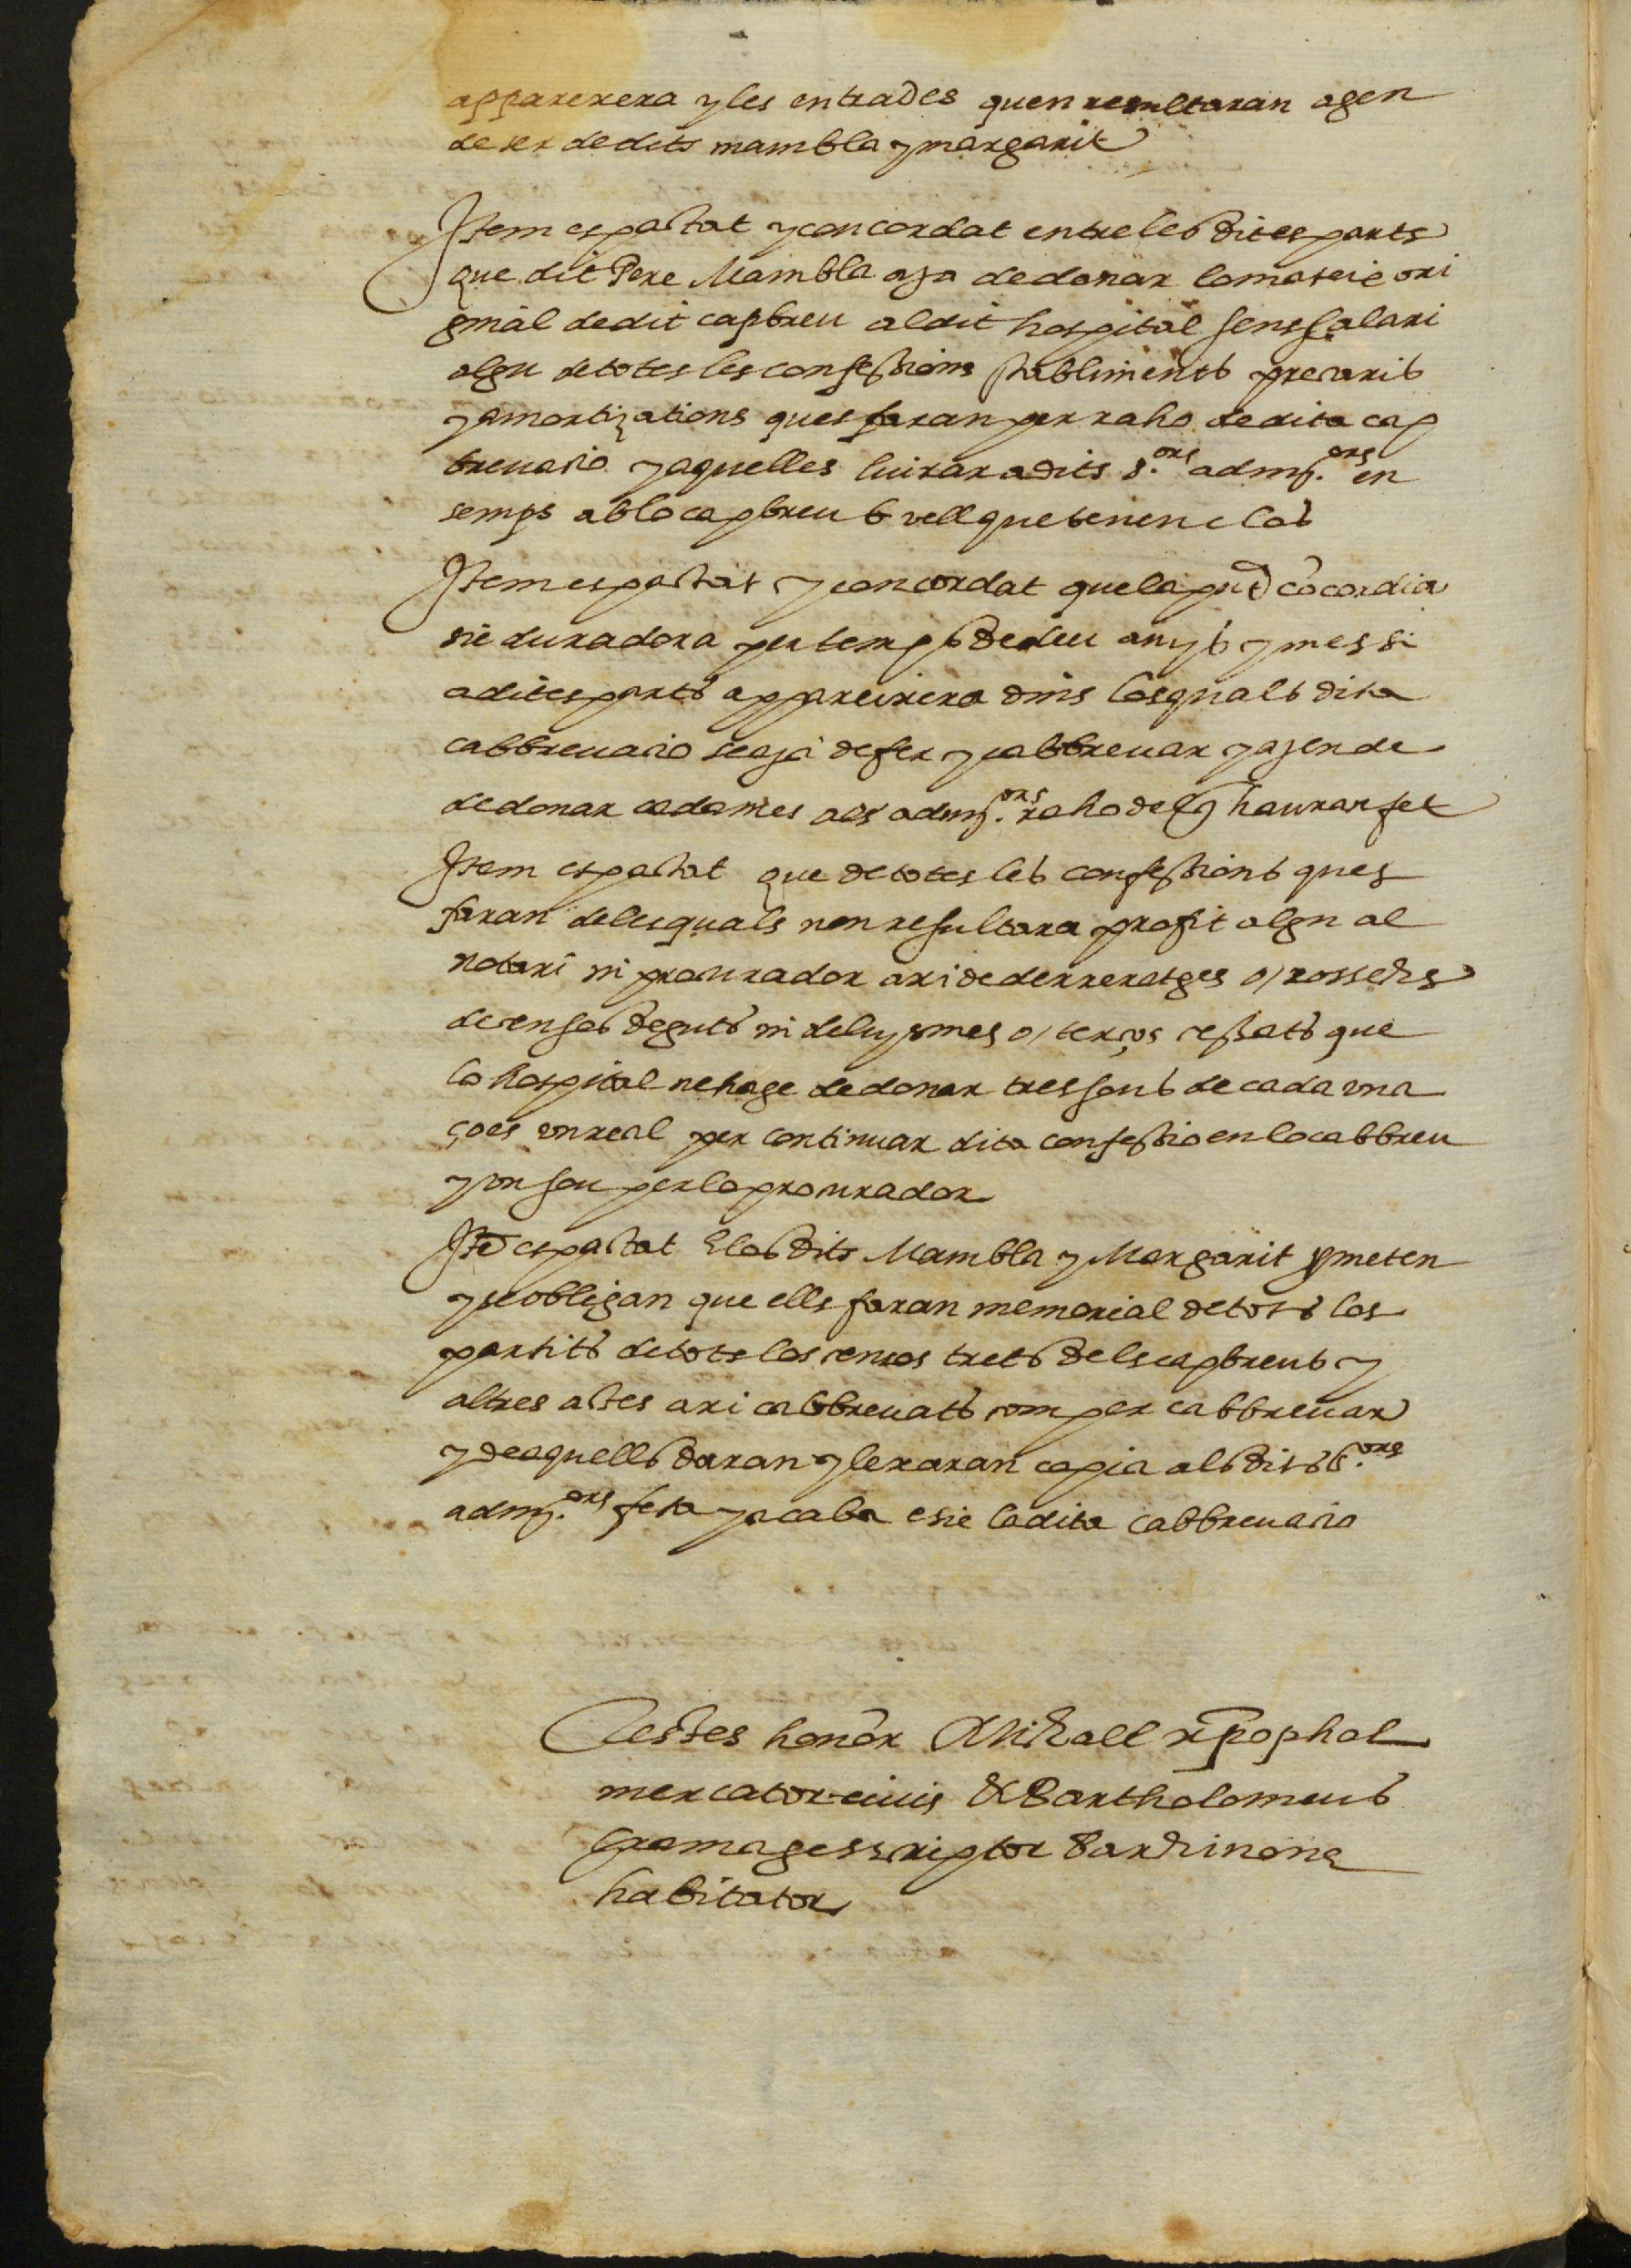 apparexera y les entrades quen resultaran agen
de ser de dits mambla y margarit
Item es pactat y concordat entre les dites parts
que dit Pere Mambla aja de donar lo mateix ori
ginal de dit capbreu al dit hospital sens salari
algu de totes les confessions stabliments precaris
y amortizations ques faran per raho de dita cap
brevatio y aquelles liurar a dits s.ors adm.ors en
semps ab lo capbreus vell que tenen los
Item es pactat y concordat que la pnt cõcordia
sie duradora per temps de deu anys y mes si
a dites parts appareixera dins losquals dita
cabbrevacio se aja de fer y cabbrevar y ajen de
de donar cada mes als adm.ors raho de q hauran fet
Item es pactat que de totes les confessions ques
faran de lesquals non resultara profit algu al
notari ni procurador axi de derreratges o/ rossechs
de censos deguts ni de luysmes o/ terços cessats que
lo hospital ne hage de donar tres sous de cada una
ço es un real per continuar dita confessio en lo cabbreu
y un sou per lo procurador
Itẽ es pactat q los dits Mambla y Margarit pmeten
y se obligan que ells faran memorial de tots los
partits de tots los censos trets dels capbreus y
altres actes axi cabbrevats com per cabbrevar
y de aquells daran y lexaran copia als dits s.ors
adm.ors feta y acaba e sie la dita cabbrevacio
Testes honor Michael xpophol
mercator civis & Bartholomeus
fromages scriptor Barchinone
habitator